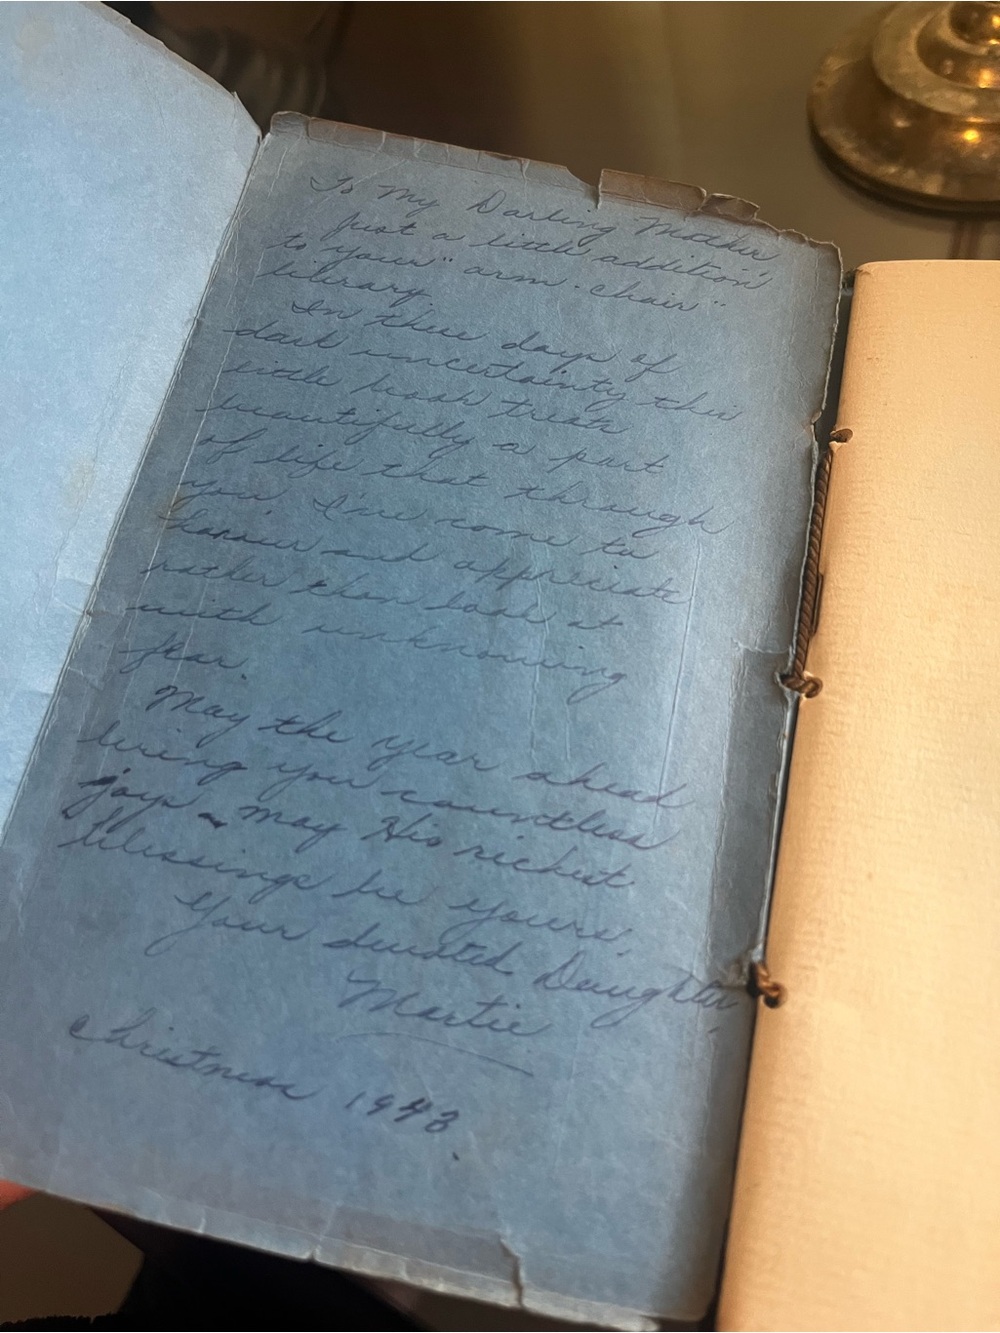 To My Darling Mother
Just a little addition
to your "arm-chair"
library.
In these days of
dark uncertainty this
little book treats
beautifully a part
of life that through
you I've come to
honor and appreciate
rather than look at
with unknowing
fear.
May the year ahead
bring you countless
joys - may His richest
blessings be yours.
Your devoted Daughter,
Martie
Christmas 1943.